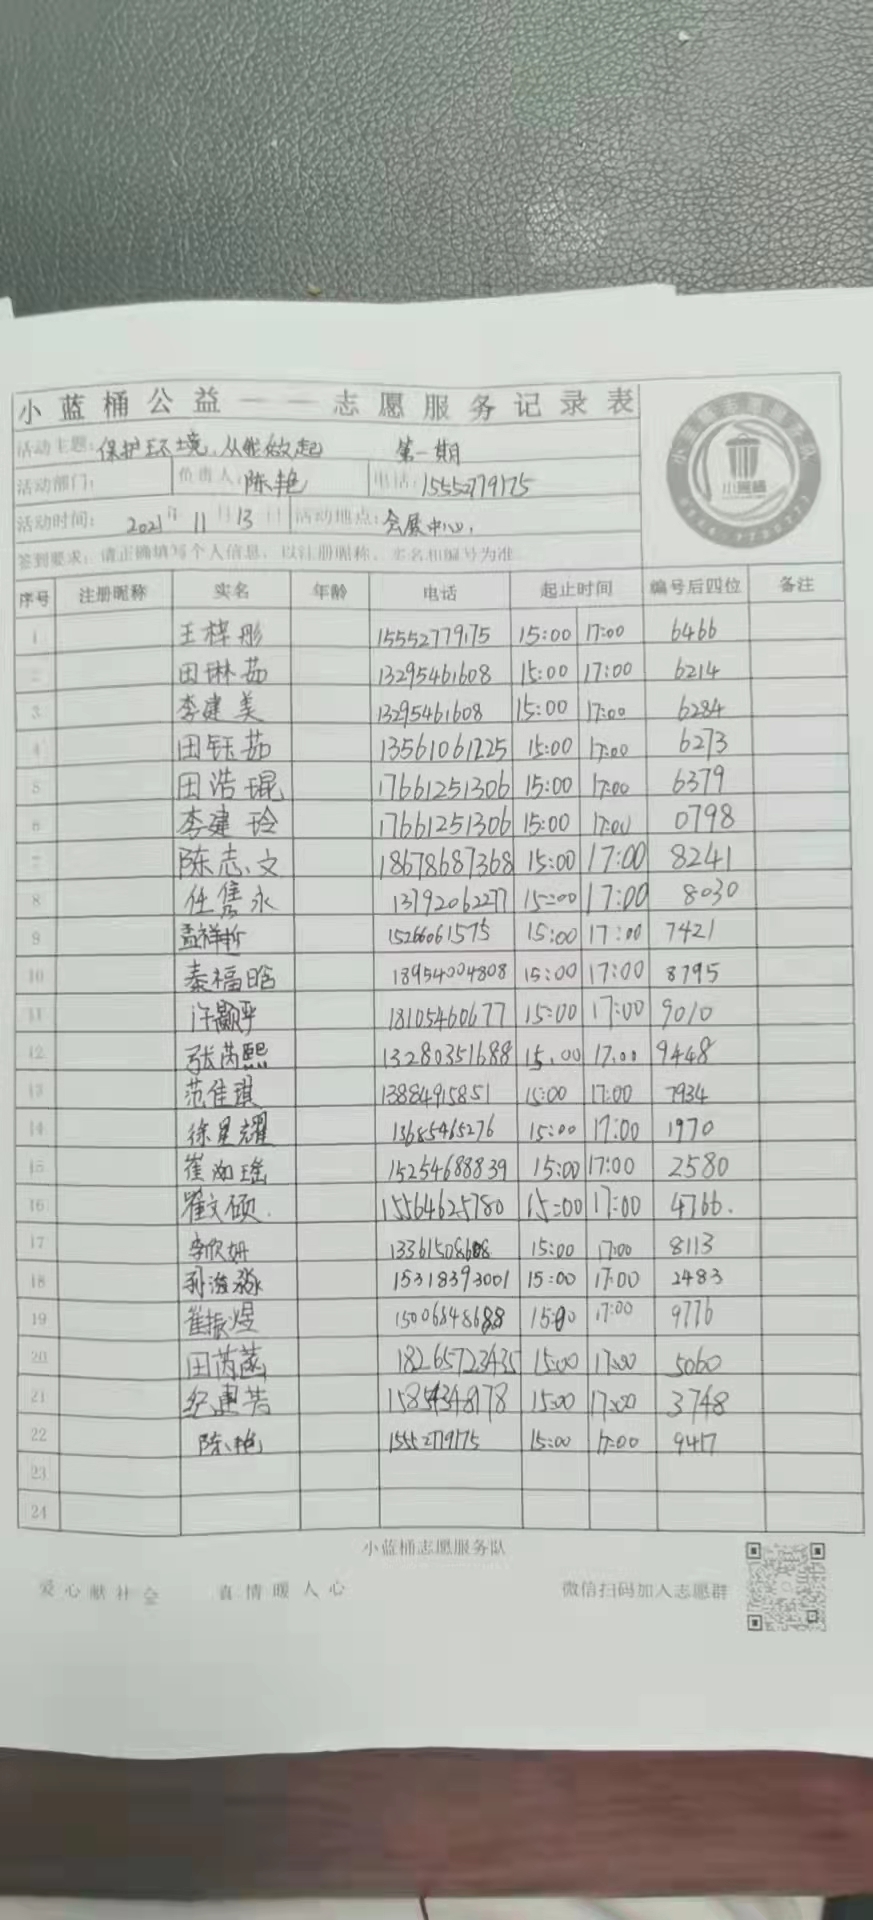 小蓝桶公益——志愿服务记录表
活动主题: 保护环境,从我做起 第一期
活动部门: 负责人: 陈艳 电话: 15552779175
活动时间: 2021年11月13日 活动地点: 会展中心.
签到要求: 请正确填写个人信息, 以注册昵称、实名和编号为准
序号 注册昵称 实名 年龄 电话 起止时间 编号后四位 备注
1 王梓彤 15552779175 15:00 17:00 6466
2 田琳茹 13295461608 15:00 17:00 6214
3 李建美 13295461608 15:00 17:00 6284
4 田钰茹 13561061225 15:00 17:00 6273
5 田浩琨 17661251306 15:00 17:00 6379
6 李建玲 17661251306 15:00 17:00 0798
7 陈志文 18678687368 15:00 17:00 8241
8 任隽永 13792062277 15:00 17:00 8030
9 孟祥哲 15266061575 15:00 17:00 7421
10 秦福晗 18954004808 15:00 17:00 8795
11 许颢严 18105460677 15:00 17:00 9010
12 张芮熙 13280351688 15.00 17.00 9448
13 范佳琪 13884915851 15:00 17:00 7934
14 徐星耀 13685465276 15:00 17:00 1970
15 崔如瑶 15254688839 15:00 17:00 2580
16 翟文硕. 15564625780 15:00 17:00 4766.
17 李欣妍 13361508608 15:00 17:00 8113
18 孙 15318393001 15:00 17:00 2483
19 崔振煜 15006848688 15:00 17:00 9776
20 田芮菡 18265723435 15:00 17:00 5060
21 纪建芳 15:00 17:00 3748
22 陈艳 15552779175 15:00 17:00 9417
23
24
小蓝桶志愿服务队
爱心献社会 真情暖人心 微信扫码加入志愿群